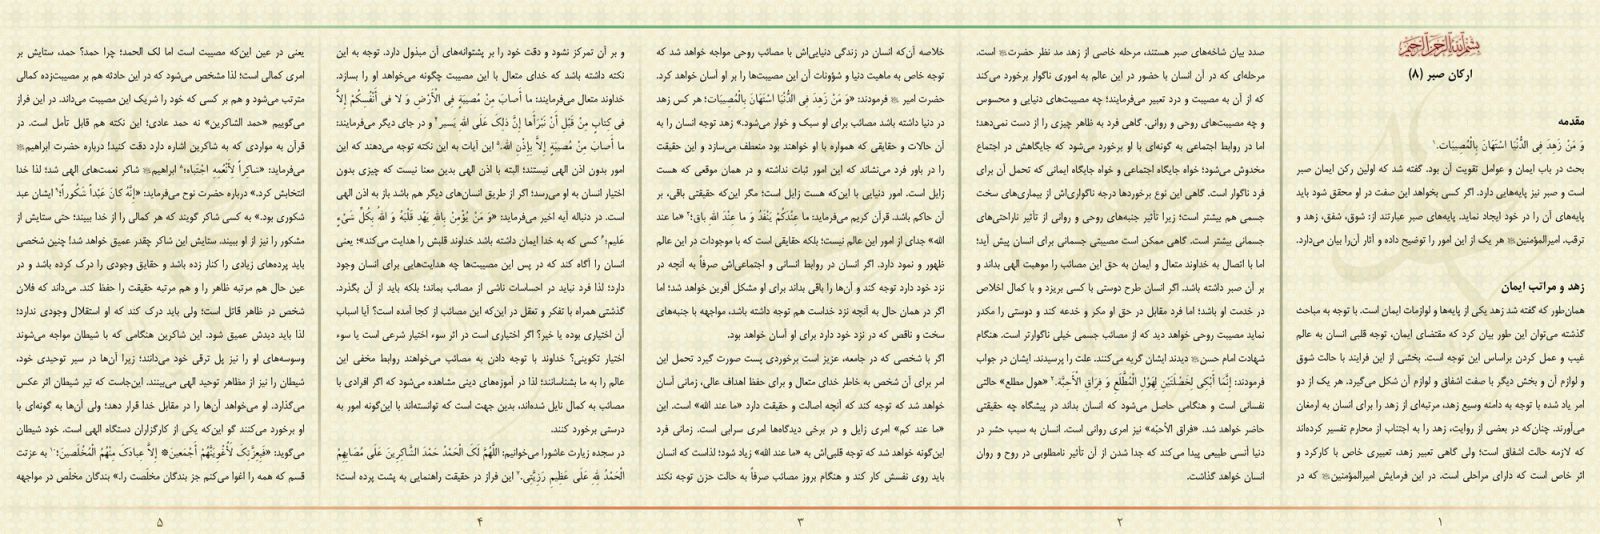 بسم الله الرحمن الرحیم
ارکان صبر (۸)
مقدمه
وَ مَنْ زَهِدَ فِی الدُّنْیَا اسْتَهَانَ بِالْمُصِیبَات.۱
بحث در باب ایمان و عوامل تقویت آن بود. گفته شد که اولین رکن ایمان صبر
است و صبر نیز پایه‌هایی دارد. اگر کسی بخواهد این صفت در او محقق شود باید
پایه‌های آن را در خود ایجاد نماید. پایه‌های صبر عبارتند از: شوق، شفق، زهد و
ترقب. امیرالمؤمنین هر یک از این امور را توضیح داده و آثار آن‌را بیان می‌دارد.
زهد و مراتب ایمان
همان‌طور که گفته شد زهد یکی از پایه‌ها و لوازمات ایمان است. با توجه به مباحث
گذشته می‌توان این طور بیان کرد که مقتضای ایمان، توجه قلبی انسان به عالم
غیب و عمل کردن براساس این توجه است. بخشی از این فرایند با حالت شوق
و لوازم آن و بخش دیگر با صفت اشفاق و لوازم آن شکل می‌گیرد. هر یک از دو
امر یاد شده با توجه به دامنه وسیع زهد، مرتبه‌ای از زهد را برای انسان به ارمغان
می‌آورند. چنان‌که در بعضی از روایت، زهد را به اجتناب از محارم تفسیر کرده‌اند
که لازمه حالت اشفاق است؛ ولی گاهی تعبیر زهد، تعبیری خاص با کارکرد و
اثر خاص است که دارای مراحلی است. در این فرمایش امیرالمؤمنین که در
۱
صدد بیان شاخه‌های صبر هستند، مرحله خاصی از زهد مد نظر حضرت است.
مرحله‌ای که در آن انسان با حضور در این عالم به اموری ناگوار برخورد می‌کند
که از آن به مصیبت و درد تعبیر می‌فرمایند؛ چه مصیبت‌های دنیایی و محسوس
و چه مصیبت‌های روحی و روانی. گاهی فرد به ظاهر چیزی را از دست نمی‌دهد؛
اما در روابط اجتماعی به گونه‌ای با او برخورد می‌شود که جایگاهش در اجتماع
مخدوش می‌شود؛ خواه جایگاه اجتماعی و خواه جایگاه ایمانی که تحمل آن برای
فرد ناگوار است. گاهی این نوع برخوردها درجه ناگواری‌اش از بیماری‌های سخت
جسمی هم بیشتر است؛ زیرا تأثیر جنبه‌های روحی و روانی از تأثیر ناراحتی‌های
جسمانی بیشتر است. گاهی ممکن است مصیبتی جسمانی برای انسان پیش آید؛
اما با اتصال به خداوند متعال و ایمان به حق این مصائب را موهبت الهی بداند و
بر آن صبر داشته باشد. اگر انسان طرح دوستی با کسی بریزد و با کمال اخلاص
در خدمت او باشد؛ اما فرد مقابل در حق او مکر و خدعه کند و دوستی را مکدر
نماید مصیبت روحی خواهد دید که از مصائب جسمی خیلی ناگوارتر است. هنگام
شهادت امام حسن دیدند ایشان گریه می‌کنند. علت را پرسیدند. ایشان در جواب
فرمودند: إِنَّمَا أَبْکِی لِخَصْلَتَیْنِ لِهَوْلِ الْمُطَّلَعِ وَ فِرَاقِ الْأَحِبَّة.۲ «هول مطلع» حالتی
نفسانی است و هنگامی حاصل می‌شود که انسان بداند در پیشگاه چه حقیقتی
حاضر خواهد شد. «فراق الأحبّه» نیز امری روانی است. انسان به سبب حشر در
دنیا اُنسی طبیعی پیدا می‌کند که جدا شدن از آن تأثیر نامطلوبی در روح و روان
انسان خواهد گذاشت.
۲
خلاصه آن‌که انسان در زندگی دنیایی‌اش با مصائب روحی مواجه خواهد شد که
توجه خاص به ماهیت دنیا و شؤونات آن این مصیبت‌ها را بر او آسان خواهد کرد.
حضرت امیر فرمودند: «وَ مَنْ زَهِدَ فِی الدُّنْیَا اسْتَهَانَ بِالْمُصِیبَات؛ هر کس زهد
در دنیا داشته باشد مصائب برای او سبک و خوار می‌شود.» زهد توجه انسان را به
آن حالات و حقایقی که همواره با او خواهند بود منعطف می‌سازد و این حقیقت
را در باور فرد می‌نشاند که این امور ثبات نداشته و در همان موقعی که هست
زایل است. امور دنیایی با این‌که هست زایل است؛ مگر این‌که حقیقتی باقی، بر
آن حاکم باشد. قرآن کریم می‌فرماید: ما عِنْدَکُمْ یَنْفَدُ وَ ما عِنْدَ اللهِ باقٍ؛۳ «ما عند
الله» جدای از امور این عالم نیست؛ بلکه حقایقی است که با موجودات در این عالم
ظهور و نمود دارد. اگر انسان در روابط انسانی و اجتماعی‌اش صرفاً به آنچه در
نزد خود دارد توجه کند و آن‌ها را باقی بداند برای او مشکل آفرین خواهد شد؛ اما
اگر در همان حال به آنچه نزد خداست هم توجه داشته باشد، مواجهه با جنبه‌های
سخت و ناقص که در نزد خود دارد برای او آسان خواهد بود.
اگر با شخصی که در جامعه، عزیز است برخوردی پست صورت گیرد تحمل این
امر برای آن شخص به خاطر خدای متعال و برای حفظ اهداف عالی، زمانی آسان
خواهد شد که توجه کند که آنچه اصالت و حقیقت دارد «ما عند الله» است. این
«ما عند کم» امری زایل و در برخی دیدگاه‌ها امری سرابی است. زمانی فرد
این‌گونه خواهد شد که توجه قلبی‌اش به «ما عند الله» زیاد شود؛ لذاست که انسان
باید روی نفسش کار کند و هنگام بروز مصائب صرفاً به حالت حزن توجه نکند
۳
و بر آن تمرکز نشود و دقت خود را بر پشتوانه‌های آن مبذول دارد. توجه به این
نکته داشته باشد که خدای متعال با این مصیبت چگونه می‌خواهد او را بسازد.
خداوند متعال می‌فرمایند: ما أَصابَ مِنْ مُصیبَةٍ فِی الْأَرْضِ وَ لا فی أَنْفُسِکُمْ إِلاَّ
فی کِتابٍ مِنْ قَبْلِ أَنْ نَبْرَأَها إِنَّ ذلِکَ عَلَی اللهِ یَسیر۴ و در جای دیگر می‌فرمایند:
ما أَصابَ مِنْ مُصیبَةٍ إِلاَّ بِإِذْنِ الله.۵ این آیات به این نکته توجه می‌دهند که این
امور بدون اذن الهی نیستند؛ البته با اذن الهی بدین معنا نیست که چیزی بدون
اختیار انسان به او می‌رسد؛ اگر از طریق انسان‌های دیگر هم باشد باز به اذن الهی
است. در دنباله آیه اخیر می‌فرماید: «وَ مَنْ یُؤْمِنْ بِاللهِ یَهْدِ قَلْبَهُ وَ اللهُ بِکُلِّ شَیْءٍ
عَلیم؛۶ کسی که به خدا ایمان داشته باشد خداوند قلبش را هدایت می‌کند»؛ یعنی
انسان را آگاه کند که در پس این مصیبت‌ها چه هدایت‌هایی برای انسان وجود
دارد؛ لذا فرد نباید در احساسات ناشی از مصائب بماند؛ بلکه باید از آن بگذرد.
گذشتی همراه با تفکر و تعقل در این‌که این مصائب از کجا آمده است؟ آیا اسباب
آن اختیاری بوده یا خیر؟ اگر اختیاری است در اثر سوء اختیار شرعی است یا سوء
اختیار تکوینی؟ خداوند با توجه دادن به مصائب می‌خواهند روابط مخفی این
عالم را به ما بشناسانند؛ لذا در آموزه‌های دینی مشاهده می‌شود که اگر افرادی با
مصائب به کمال نایل شده‌اند، بدین جهت است که توانسته‌اند با این‌گونه امور به
درستی برخورد کنند.
در سجده زیارت عاشورا می‌خوانیم: اللَّهُمَّ لَکَ الْحَمْدُ حَمْدَ الشَّاکِرِینَ عَلَی مُصَابِهِمْ
الْحَمْدُ لِلهِ عَلَی عَظِیمِ رَزِیَّتِی.۷ این فراز در حقیقت راهنمایی به پشت پرده است؛
۴
یعنی در عین این‌که مصیبت است اما لک الحمد؛ چرا حمد؟ حمد، ستایش بر
امری کمالی است؛ لذا مشخص می‌شود که در این حادثه هم بر مصیبت‌زده کمالی
مترتب می‌شود و هم بر کسی که خود را شریک این مصیبت می‌داند. در این فراز
می‌گوییم «حمد الشاکرین» نه حمد عادی؛ این نکته هم قابل تأمل است. در
قرآن به مواردی که به شاکرین اشاره دارد دقت کنید! درباره حضرت ابراهیم
می‌فرماید: «شاکِراً لِأَنْعُمِهِ اجْتَباه»؛۸ ابراهیم شاکر نعمت‌های الهی شد؛ لذا خدا
انتخابش کرد.» درباره حضرت نوح می‌فرماید: «إِنَّهُ کانَ عَبْداً شَکُوراً؛۹ ایشان عبد
شکوری بود.» به کسی شاکر گویند که هر کمالی را از خدا ببیند؛ حتی ستایش از
مشکور را نیز از او ببیند. ستایش این شاکر چقدر عمیق خواهد شد! چنین شخصی
باید پرده‌های زیادی را کنار زده باشد و حقایق وجودی را درک کرده باشد و در
عین حال هم مرتبه ظاهر را و هم مرتبه حقیقت را حفظ کند. می‌داند که فلان
شخص در ظاهر قاتل است؛ ولی باید درک کند که او استقلال وجودی ندارد؛
لذا باید دیدش عمیق شود. این شاکرین هنگامی که با شیطان مواجه می‌شوند
وسوسه‌های او را نیز پل ترقی خود می‌دانند؛ زیرا آن‌ها در سیر توحیدی خود،
شیطان را نیز از مظاهر توحید الهی می‌بینند. این‌جاست که تیر شیطان اثر عکس
می‌گذارد. او می‌خواهد آن‌ها را در مقابل خدا قرار دهد؛ ولی آن‌ها به گونه‌ای با
او برخورد می‌کنند گو این‌که یکی از کارگزاران دستگاه الهی است. خود شیطان
می‌گوید: «فَبِعِزَّتِکَ لَأُغْوِیَنَّهُمْ أَجْمَعینَ إِلاَّ عِبادَکَ مِنْهُمُ الْمُخْلَصینَ؛۱۰ به عزتت
قسم که همه را اغوا می‌کنم جز بندگان مخلَصت را.» بندگان مخلَص در مواجهه
۵